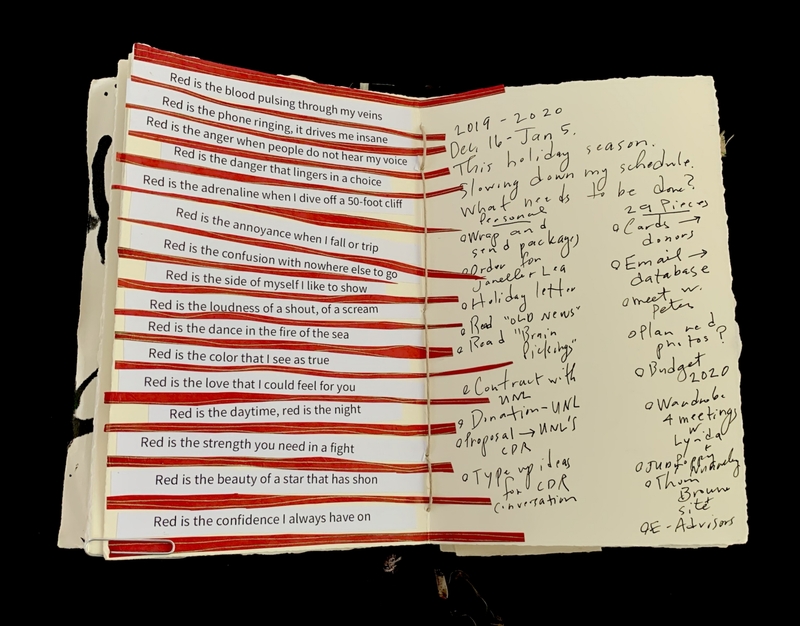 Red is the blood pulsing through my veins
Red is the phone ringing, it drives me insane
Red is the anger when people do not hear my voice
Red is the danger that lingers in a choice
Red is the adrenaline when I dive off a 50-foot cliff
Red is the annoyance when I fall or trip
Red is the confusion with nowhere else to go
Red is the side of myself I like to show
Red is the loudness of a shout, of a scream
Red is the dance in the fire of the sea
Red is the color that I see as true
Red is the love that I could feel for you
Red is the daytime, red is the night
Red is the strength you need in a fight
Red is the beauty of a star that has shon
Red is the confidence I always have on
2019 - 2020
Dec. 16 - Jan 5.
This holiday season.
Slowing down my schedule.
What needs to be done?
Personal
Wrap and
send packages
Order for
Janeller Lea
Holiday letter
Read "OLD NEWS"
Read "Brain
Pickings"
Contract with
UNL
Donation - UNL
Proposal → UNL'S
CDR
Type up ideas
for CDR
conversation
29 Pieces
Cards →
donors
Email →
database
meet w.
Peter
Plan red
photos?
Budget
2020
Wardrobe
4 meetings
w
Lynda
Thom
Browne
site
E-Advisors